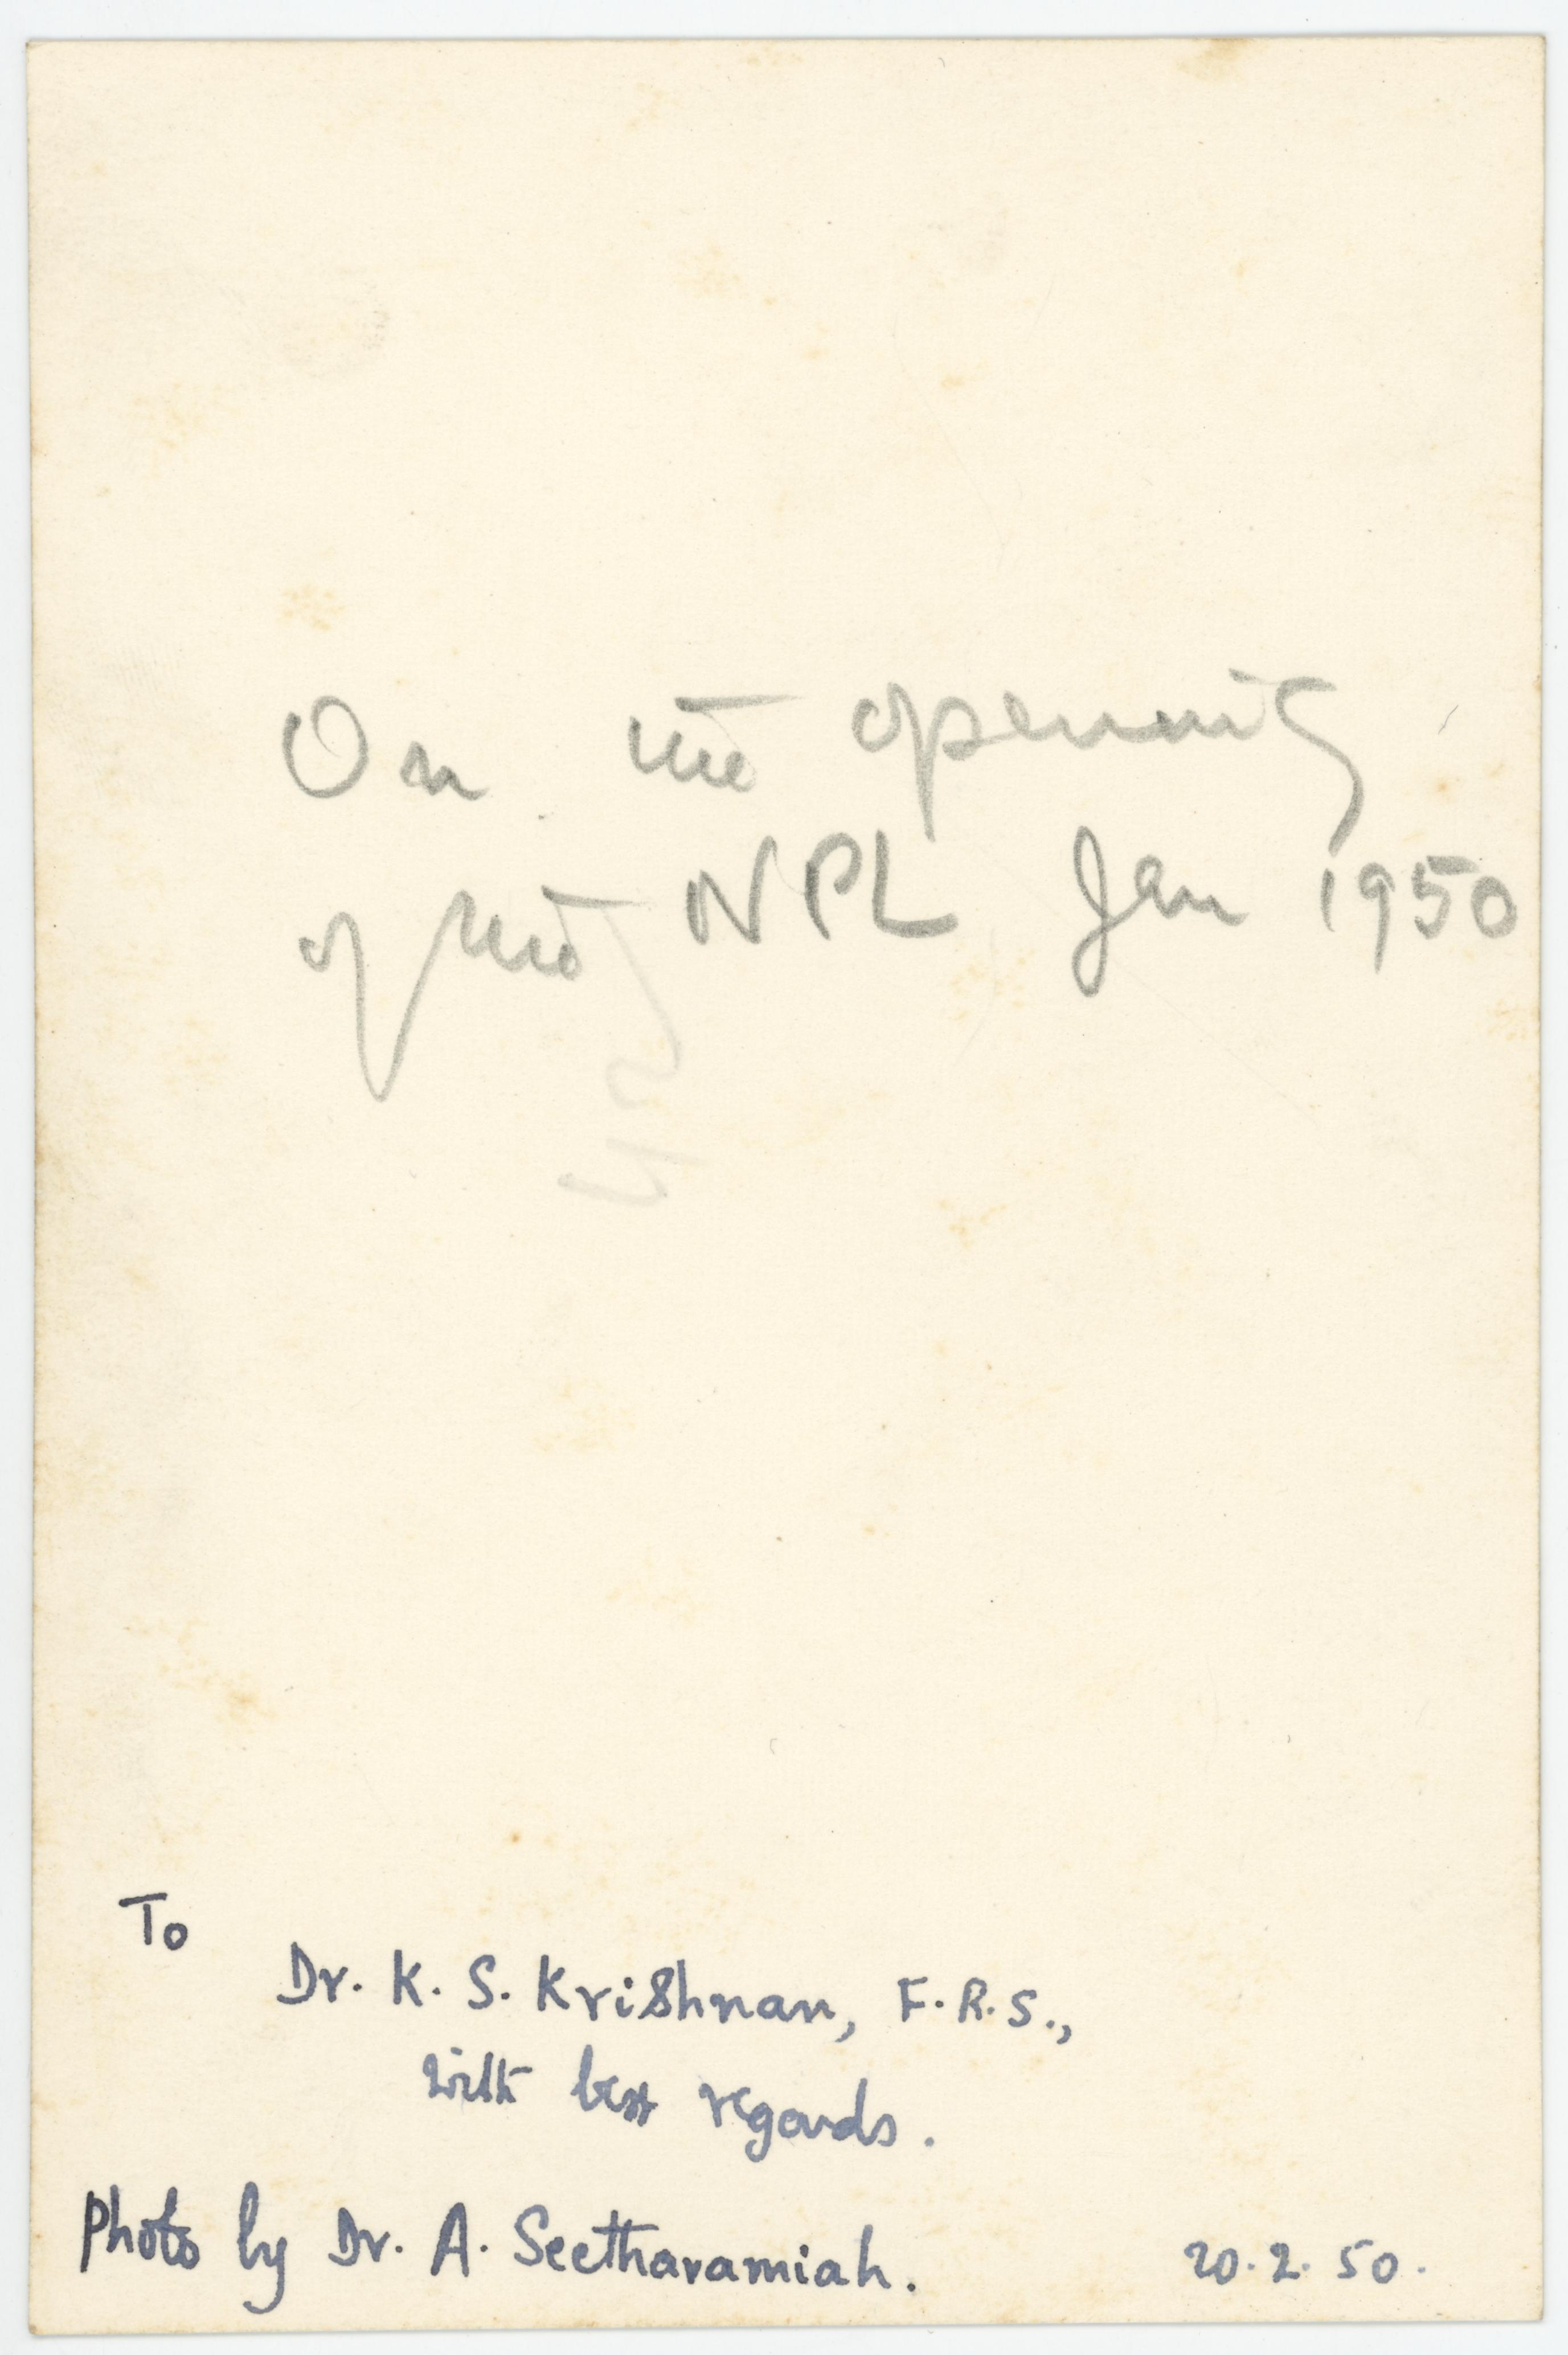 On the opening
of the NPL Jan 1950
To
Dr. K. S. Krishnan, F.R.S.,
with best regards.
Photo by Dr. A. Seetharamiah.
20.2.50.